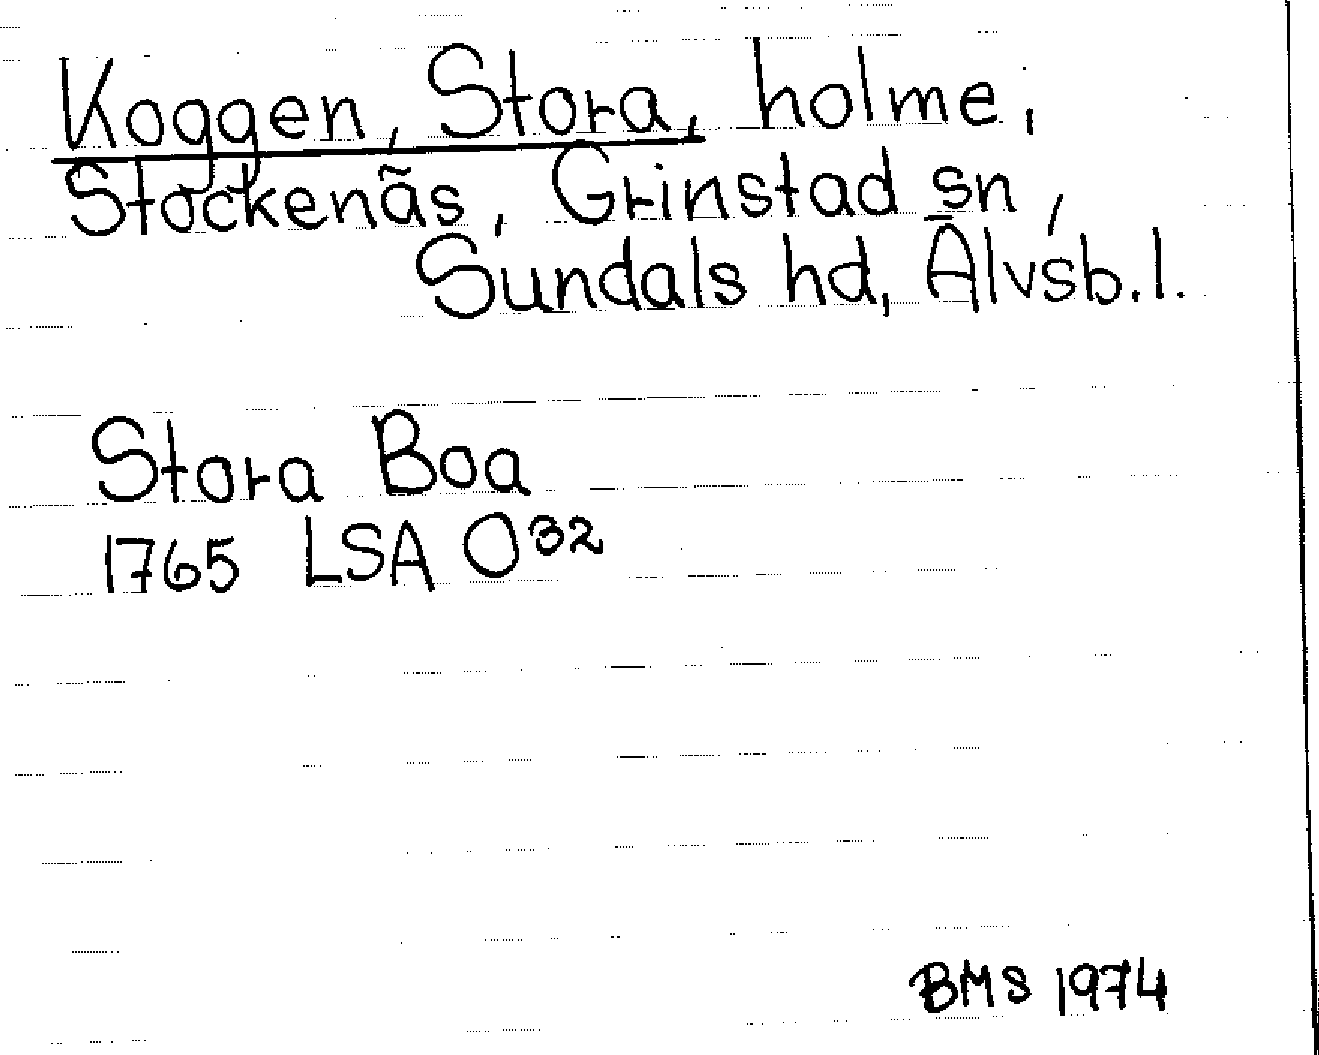 Koggen, Stora, holme,
Stockenäs, Grinstad sn,
Sundals hd, Älvsb. l.
Stora Boa
1765 LSA O32
BMS 1974